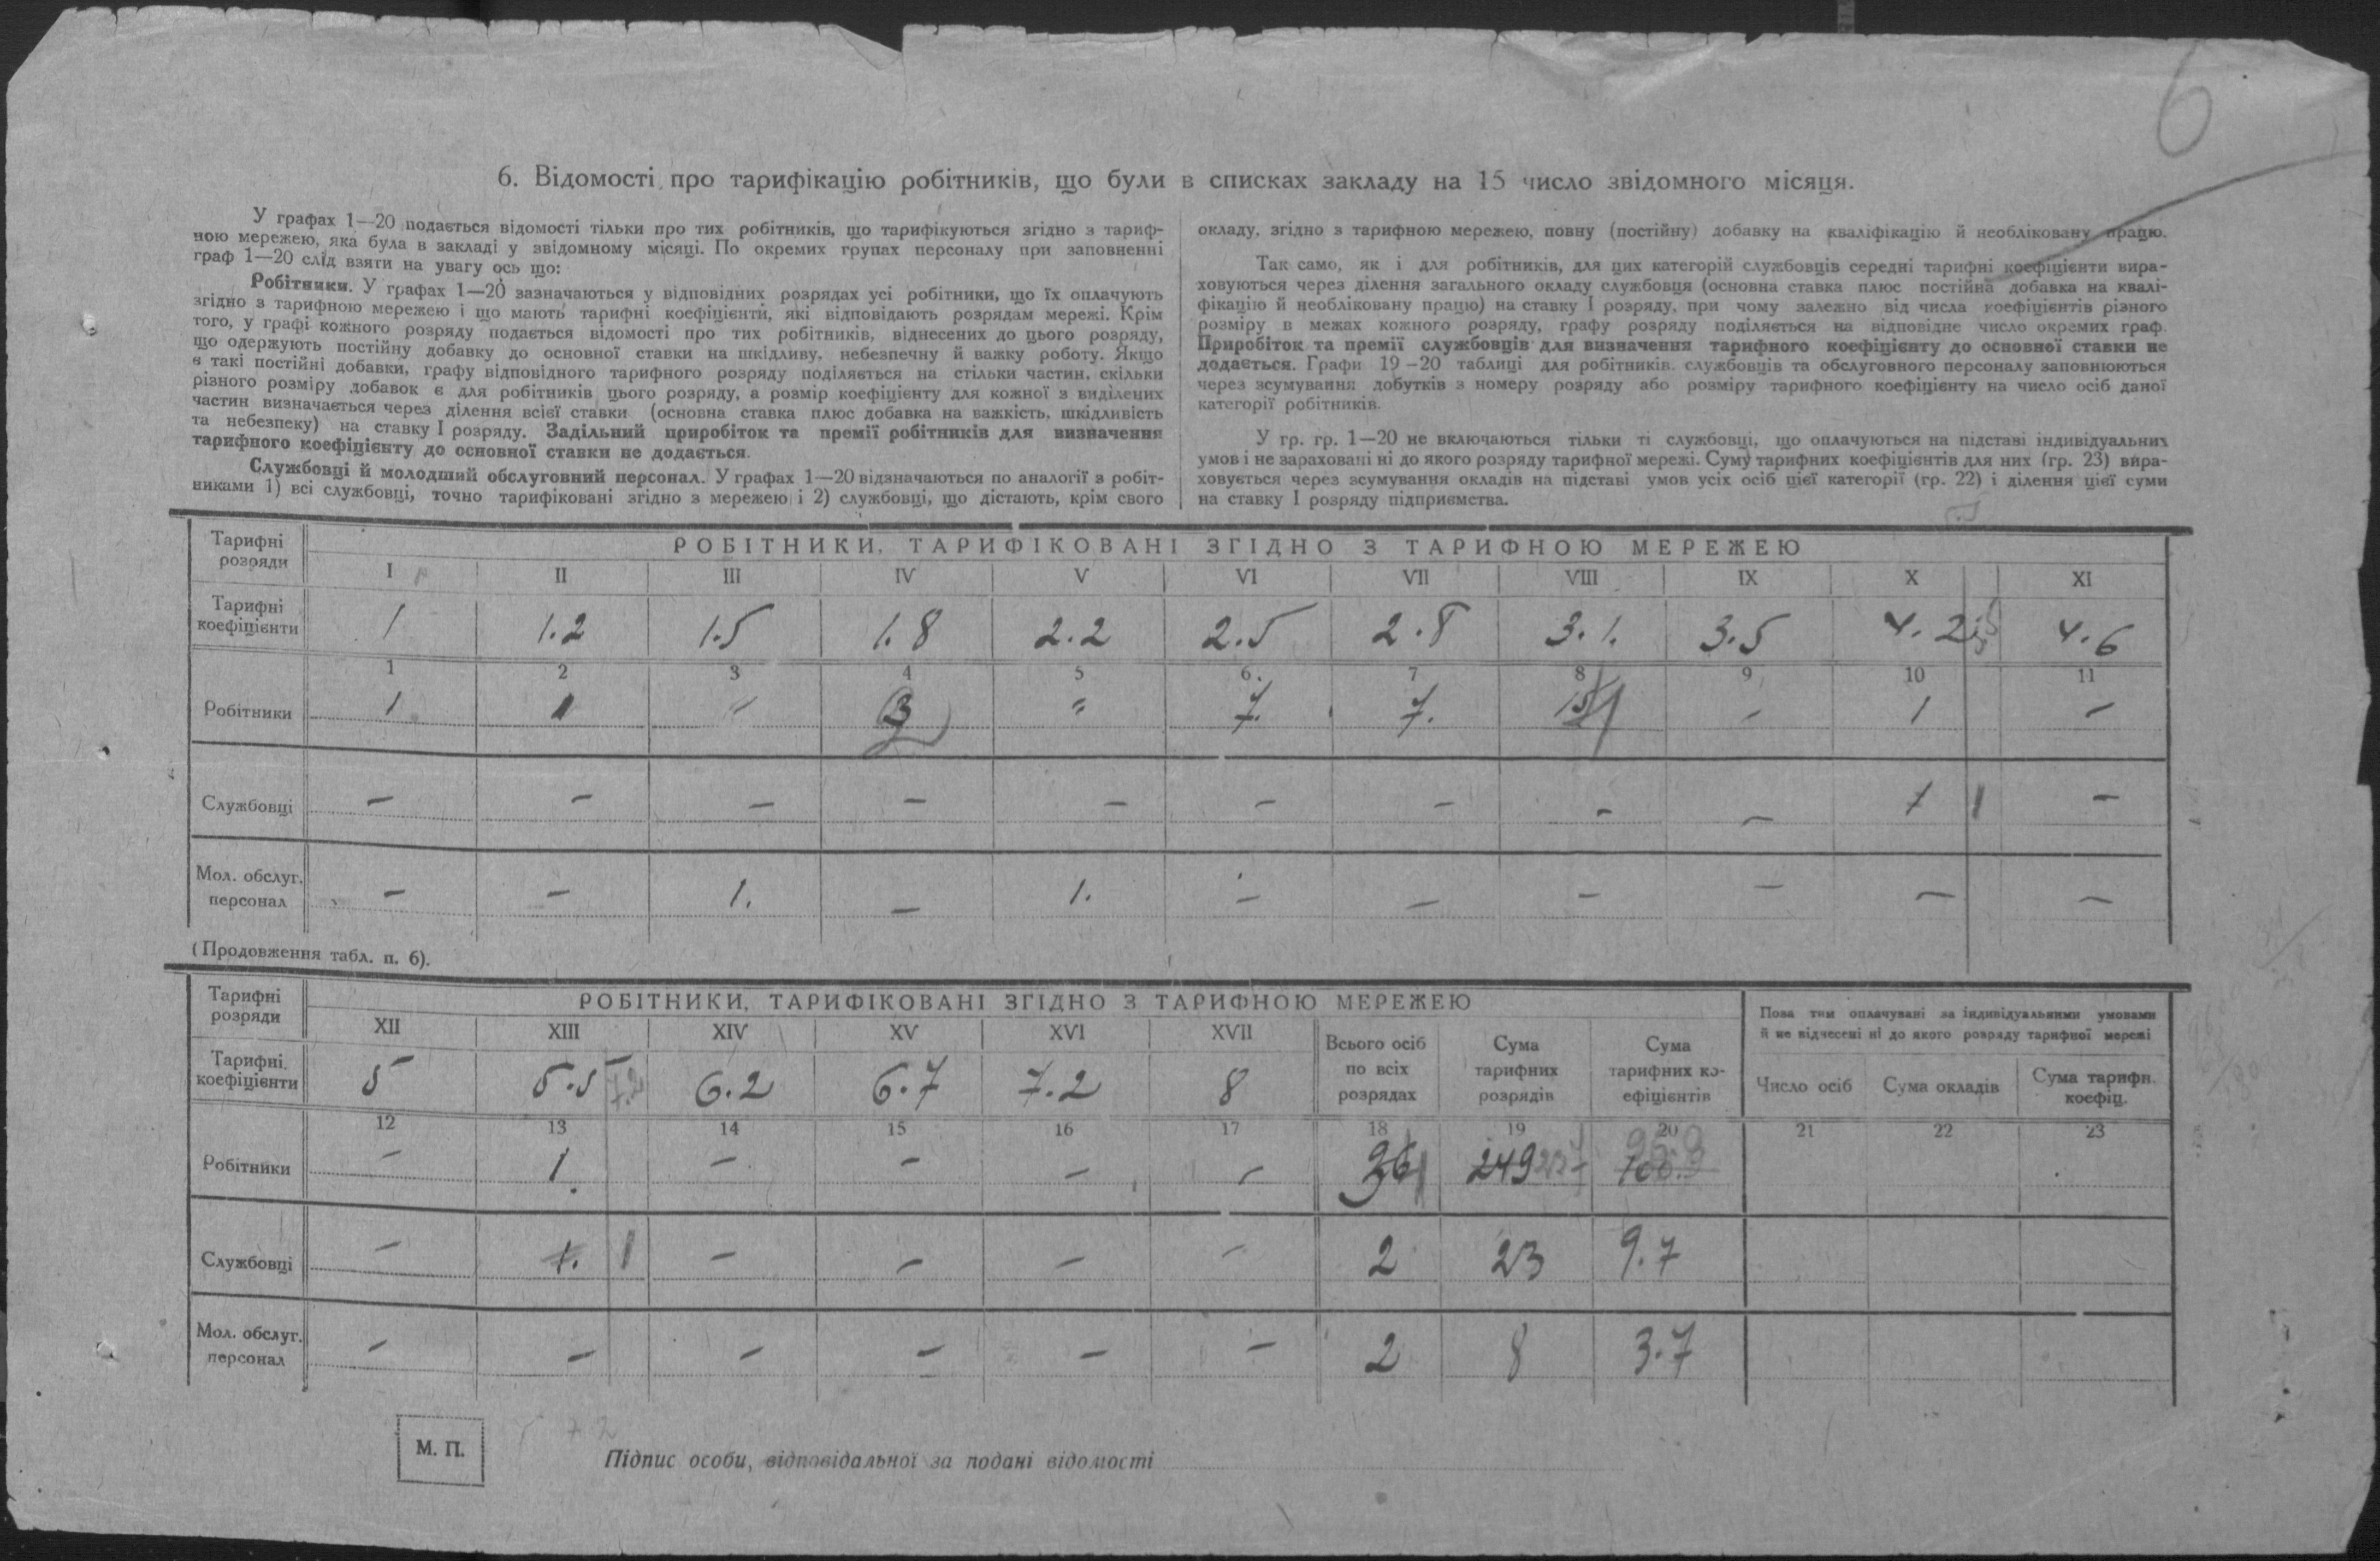 6
6. Відомості про тарифікацію робітників, що були в списках закладу на 15 число звідомного місяця.
У графах 1—20 подається відомості тільки про тих робітників, що тарифікуються згідно з тариф-
ною мережею, яка була в закладі у звідомному місяці. По окремих групах персоналу при заповненні
граф 1—20 слід взяти на увагу ось що:
Робітники. У графах 1—20 зазначаються у відповідних розрядах усі робітники, що їх оплачують
згідно з тарифною мережею і що мають тарифні коефіцієнти, які відповідають розрядам мережі. Крім
того, у графі кожного розряду подається відомості про тих робітників, віднесених до цього розряду,
що одержують постійну добавку до основної ставки на шкідливу, небезпечну й важку роботу. Якщо
є такі постійні добавки, графу відповідного тарифного розряду поділяється на стільки частин, скільки
різного розміру добавок є для робітників цього розряду, а розмір коефіцієнту для кожної з виділених
частин визначається через ділення всієї ставки (основна ставка плюс добавка на важкість, шкідливість
та небезпеку) на ставку I розряду. Задільний приробіток та премії робітників для визначення
тарифного коефіцієнту до основної ставки не додається.
Службовці й молодший обслуговний персонал. У графах 1—20 відзначаються по аналогії з робіт-
никами 1) всі службовці, точно тарифіковані згідно з мережею і 2) службовці, що дістають, крім свого
окладу, згідно з тарифною мережею, повну (постійну) добавку на кваліфікацію й необліковану працю.
Так само, як і для робітників, для цих категорій службовців середні тарифні коефіцієнти вира-
ховуються через ділення загального окладу службовця (основна ставка плюс постійна добавка на квалі-
фікацію й необліковану працю) на ставку I розряду, при чому залежно від числа коефіцієнтів різного
розміру в межах кожного розряду, графу розряду поділяється на відповідне число окремих граф.
Приробіток та премії службовців для визначення тарифного коефіцієнту до основної ставки не
додається. Графи 19—20 таблиці для робітників. службовців та обслуговного персоналу заповнюються
через зсумування добутків з номеру розряду або розміру тарифного коефіцієнту на число осіб даної
категорії робітників.
У гр. гр. 1—20 не включаються тільки ті службовці, що оплачуються на підставі індивідуальних
умов і не зараховані ні до якого розряду тарифної мережі. Суму тарифних коефіцієнтів для них (гр. 23) вира-
ховується через зсумування окладів на підставі умов усіх осіб цієї категорії (гр. 22) і ділення цієї суми
на ставку I розряду підприємства.
Тарифні розряди
РОБІТНИКИ, ТАРИФІКОВАНІ ЗГІДНО З ТАРИФНОЮ МЕРЕЖЕЮ
I II III IV V VI VII VIII IX X XI
Тарифні коефіцієнти 1 1.2 1.5 1.8 2.2 2.5 2.8 3.1. 3.5 4.2 4.6
1 2 3 4 5 6. 7 8 9 10 11
Робітники 1 1 – 3 " 7. 7. – 1 –
Службовці – – – – – – – – – 1 1 –
Мол. обслуг. персонал – – 1. – 1. – – – – – –
(Продовження табл. п. 6).
Тарифні розряди
РОБІТНИКИ, ТАРИФІКОВАНІ ЗГІДНО З ТАРИФНОЮ МЕРЕЖЕЮ
XII XIII XIV XV XVI XVII
Всього осіб по всіх розрядах
Сума тарифних розрядів
Сума тарифних ко-ефіцієнтів
Поза тим оплачувані за індивідуальними умовами
й не віднесені ні до якого розряду тарифної мережі
Число осіб Сума окладів Сума тарифн. коефіц.
Тарифні коефіцієнти 5 5.5 7.2 6.2 6.7 7.2 8
12 13 14 15 16 17 18 19 20 21 22 23
Робітники – 1. – – – – 36 249
Службовці – 1. 1 – – – – 2 23 9.7
Мол. обслуг. персонал – – – – – – 2 8 3.7
М. П.
Підпис особи, відповідальної за подані відомості